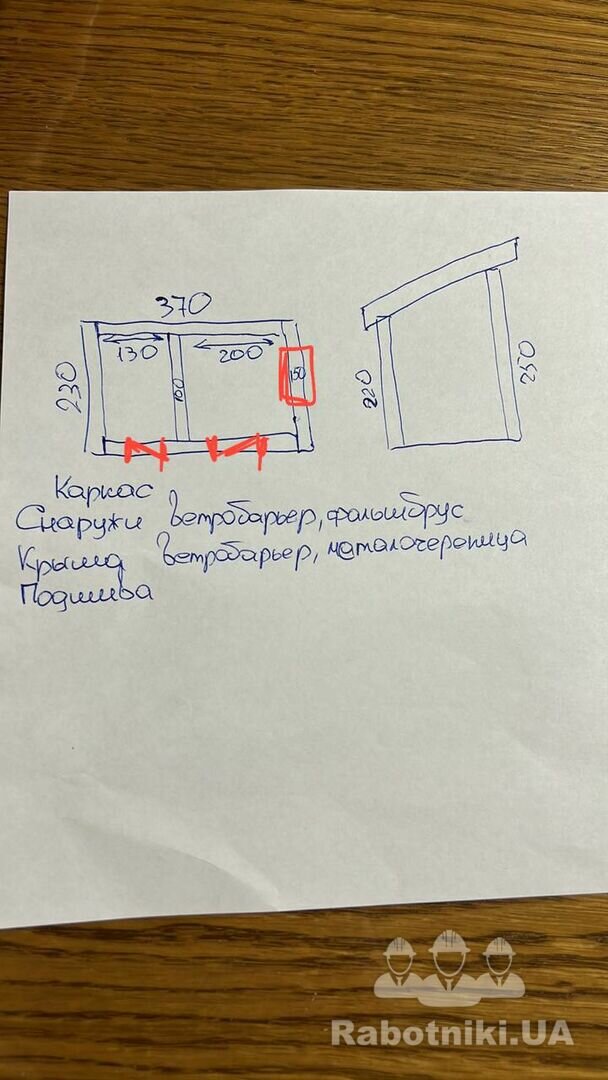 370
230
130
200
100
150
220
250
Каркас
Снаружи ветробарьер, фальшбрус
Крыша ветробарьер, маталочерепица
Подшива
Rabotniki.UA